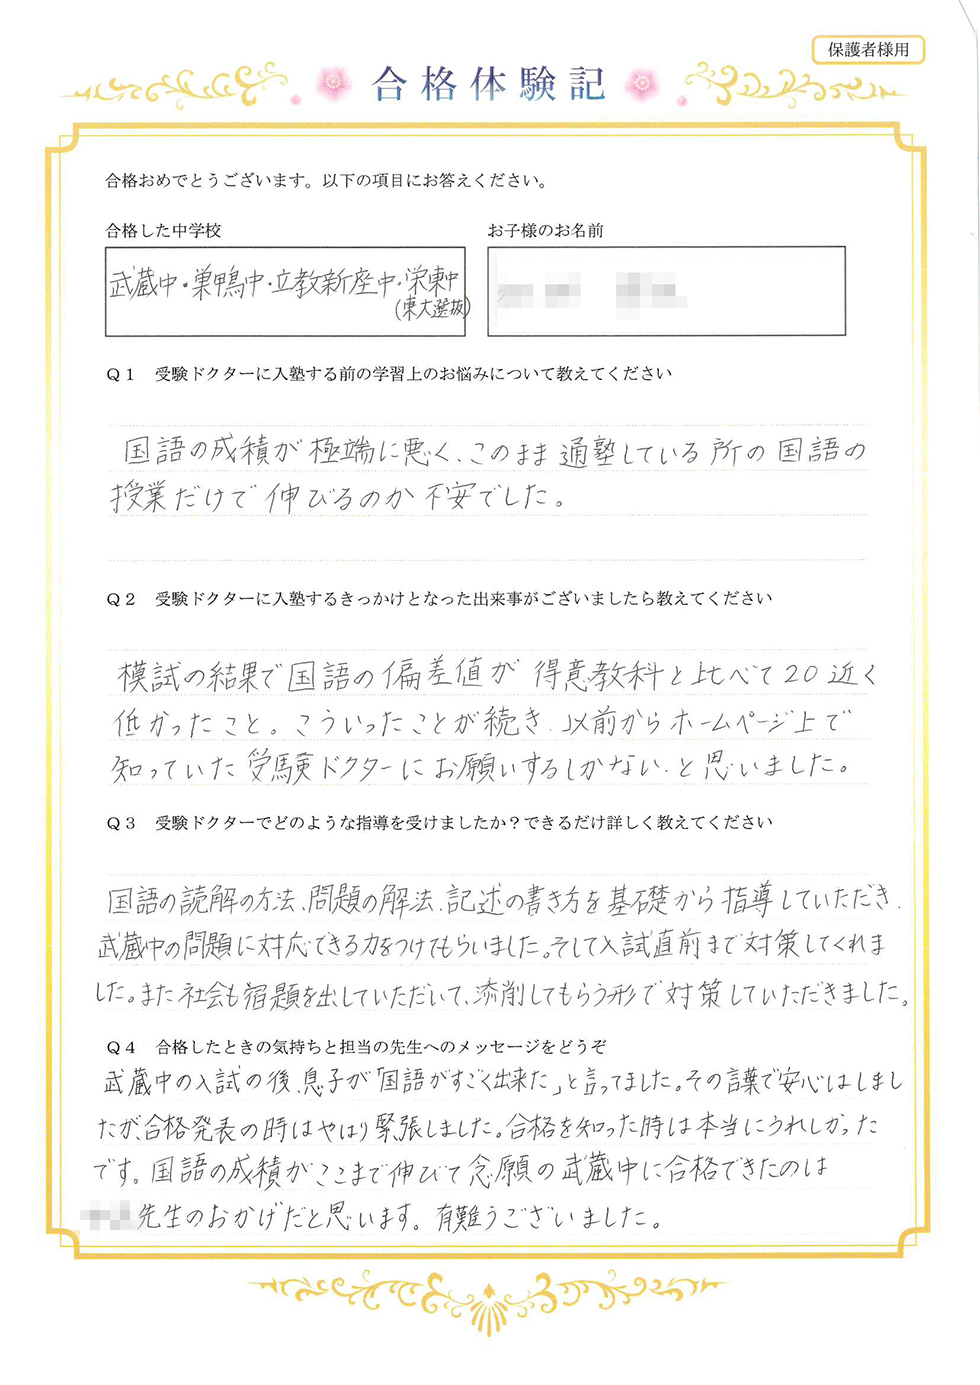 保護者様用
合格体験記
合格おめでとうございます。以下の項目にお答えください。
合格した中学校
お子様のお名前
武蔵中・巣鴨中・立教新座中・栄東中
(東大選抜)
Q1 受験ドクターに入塾する前の学習上のお悩みについて教えてください
国語の成績が極端に悪く、このまま通塾している所の国語の
授業だけで伸びるのか不安でした。
Q2 受験ドクターに入塾するきっかけとなった出来事がございましたら教えてください
模試の結果で国語の偏差値が得意教科と比べて20近く
低かったこと。こういったことが続き、以前からホームページ上で
知っていた受験ドクターにお願いするしかない、と思いました。
Q3 受験ドクターでどのような指導を受けましたか？できるだけ詳しく教えてください
国語の読解の方法、問題の解法、記述の書き方を基礎から指導していただき、
武蔵中の問題に対応できる力をつけてもらいました。そして入試直前まで対策してくれま
した。また社会も宿題を出していただいて、添削してもらう形で対策していただきました。
Q4 合格したときの気持ちと担当の先生へのメッセージをどうぞ
武蔵中の入試の後、息子が「国語がすごく出来た」と言ってました。その言葉で安心はしまし
たが、合格発表の時はやはり緊張しました。合格を知った時は本当にうれしかった
です。国語の成績がここまで伸びて念願の武蔵中に合格できたのは
先生のおかげだと思います。有難うございました。